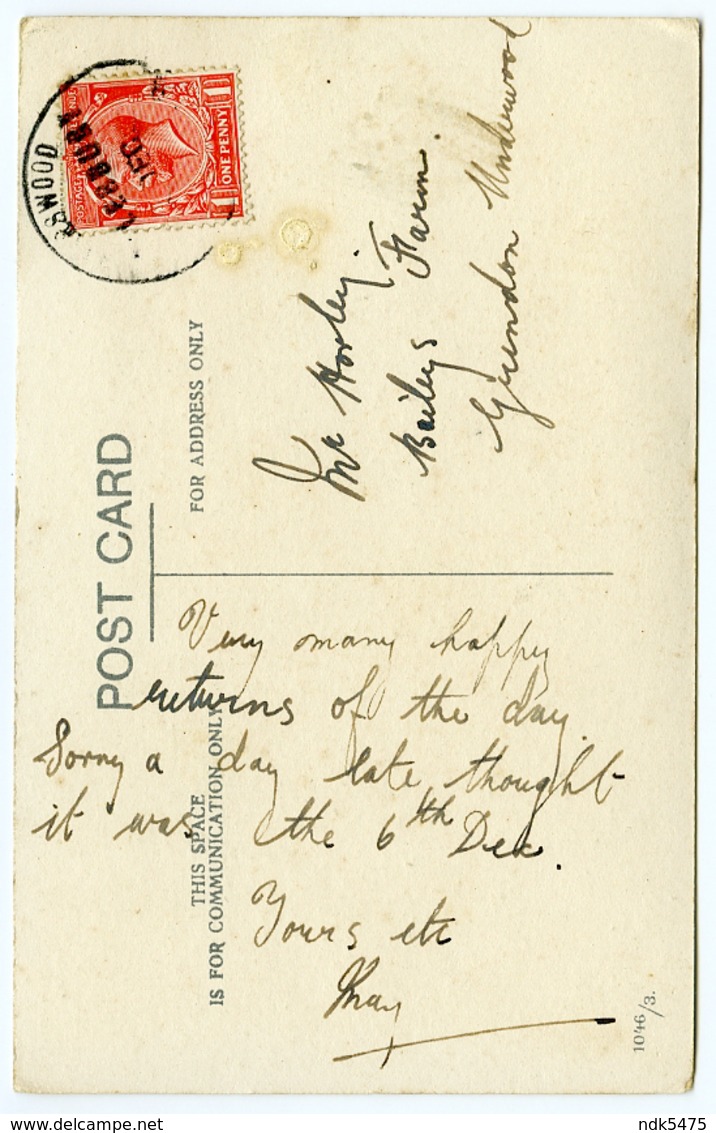 POST CARD
THIS SPACE
IS FOR COMMUNICATION ONLY
FOR ADDRESS ONLY
ONE PENNY
1
1
POSTAGE
Very many happy
returns of the day
Sorry a day late, thought
it was the 6th Dec.
Yours etc
May
Mr Horley
Baileys Farm.
Grendon Underwood
1046/3.
delcampe.net
ndk5475